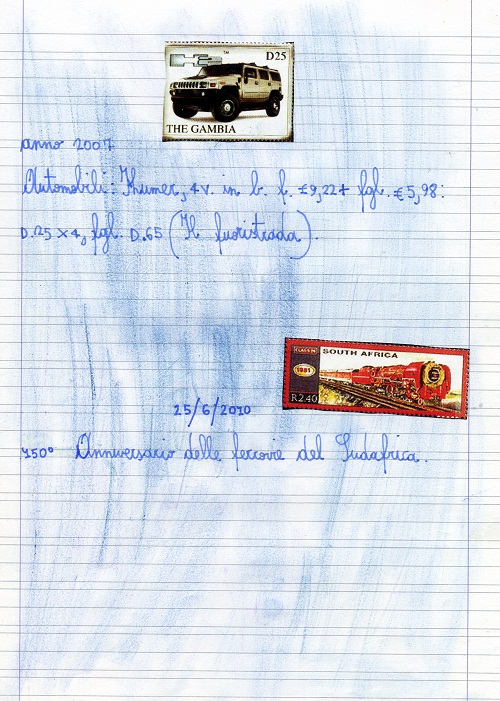 H2 TM D25
THE GAMBIA
anno 2007
Automobili: Khumer, 4v. in b. f. £9,22+ fgl. €5,98:
D.25 x 4, fgl. D.65 (Il fuoristrada).
CLASS 26 SOUTH AFRICA
1981
R2.40
25/6/2010
150° Anniversario delle ferrovie del Sudafrica.